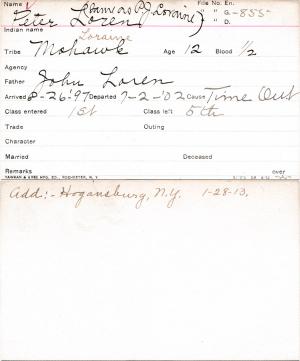 Name Peter Loren (Known as P. J. Lorraine) File No. En.
" " G-855
" " D.
Indian name Loraine
Tribe Mohawk Age 12 Blood 1/2
Agency
Father John Loren
Arrived 8-26-'97 Departed 7-2-'02 Cause Time Out
Class entered 1st Class left 5th
Trade Outing
Character
Married Deceased
Remarks over
YAWMAN & ERBE MFG. CO., ROCHESTER, N. Y.
Add:- Hogansburg, N.Y. 1-28-13.